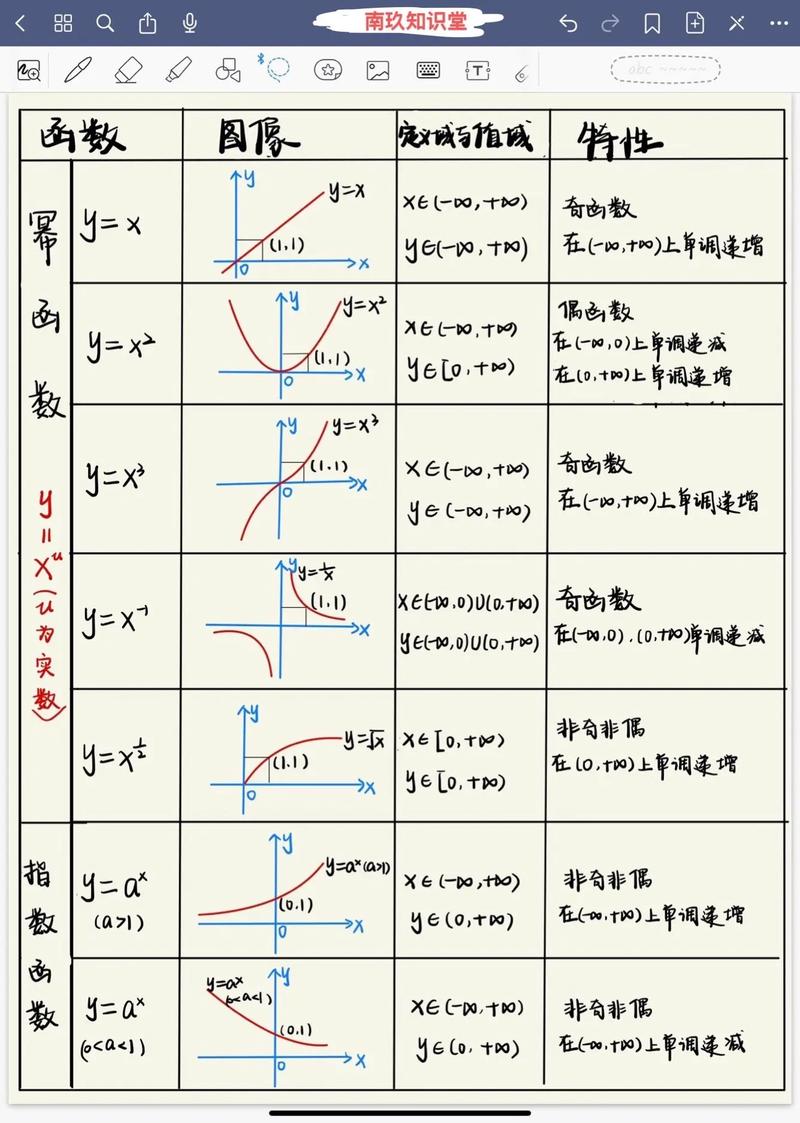 南玖知识堂
abc
T
函数 图像 定义域与值域 特性
幂函数
y=x^u(u为实数)
y=x
y
y=x
(1,1)
0
x
x∈(-∞,+∞)
y∈(-∞,+∞)
奇函数
在(-∞,+∞)上单调递增
y=x²
y
y=x²
(1,1)
0
x
x∈(-∞,+∞)
y∈[0,+∞)
偶函数
在(-∞,0)上单调递减
在(0,+∞)上单调递增
y=x³
y
y=x³
(1,1)
0
x
x∈(-∞,+∞)
y∈(-∞,+∞)
奇函数
在(-∞,+∞)上单调递增
y=x⁻¹
y
y=1/x
(1,1)
x
x∈(-∞,0)∪(0,+∞)
y∈(-∞,0)∪(0,+∞)
奇函数
在(-∞,0),(0,+∞)单调递减
y=x^½
y
y=√x
(1,1)
0
x
x∈[0,+∞)
y∈[0,+∞)
非奇非偶
在(0,+∞)上单调递增
指数函数
y=aˣ
(a>1)
y
y=aˣ(a>1)
(0,1)
0
x
x∈(-∞,+∞)
y∈(0,+∞)
非奇非偶
在(-∞,+∞)上单调递增
y=aˣ
(0<a<1)
y
y=aˣ
(0<a<1)
(0,1)
0
x
x∈(-∞,+∞)
y∈(0,+∞)
非奇非偶
在(-∞,+∞)上单调递减